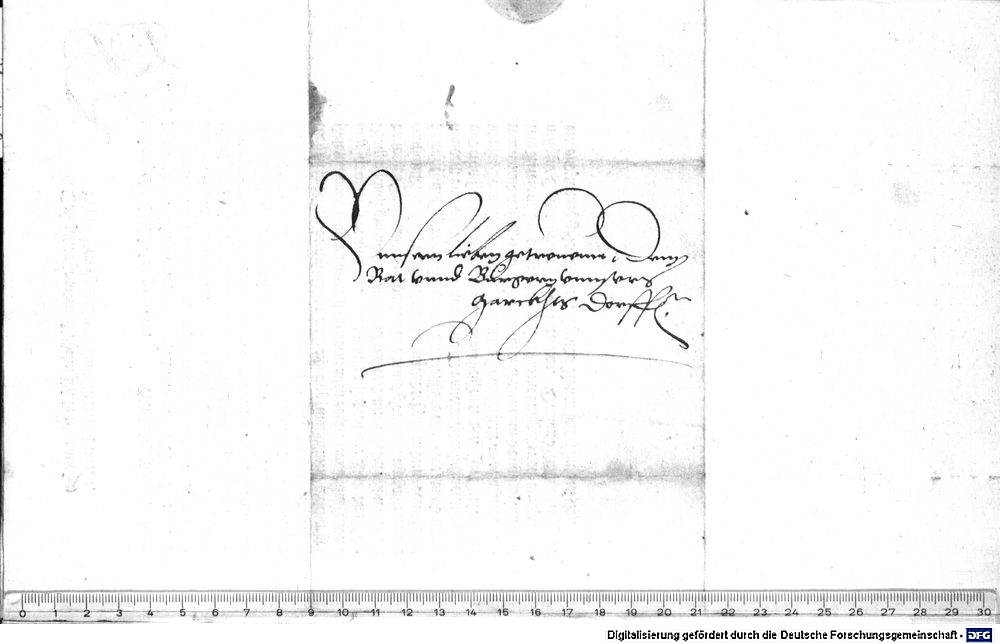 Vnnsern lieben getrewenn, Dem
Rat vnnd Burgern vnnsers
Marckhts Dorffen.
0 1 2 3 4 5 6 7 8 9 10 11 12 13 14 15 16 17 18 19 20 21 22 23 24 25 26 27 28 29 30
Digitalisierung gefördert durch die Deutsche Forschungsgemeinschaft - DFG